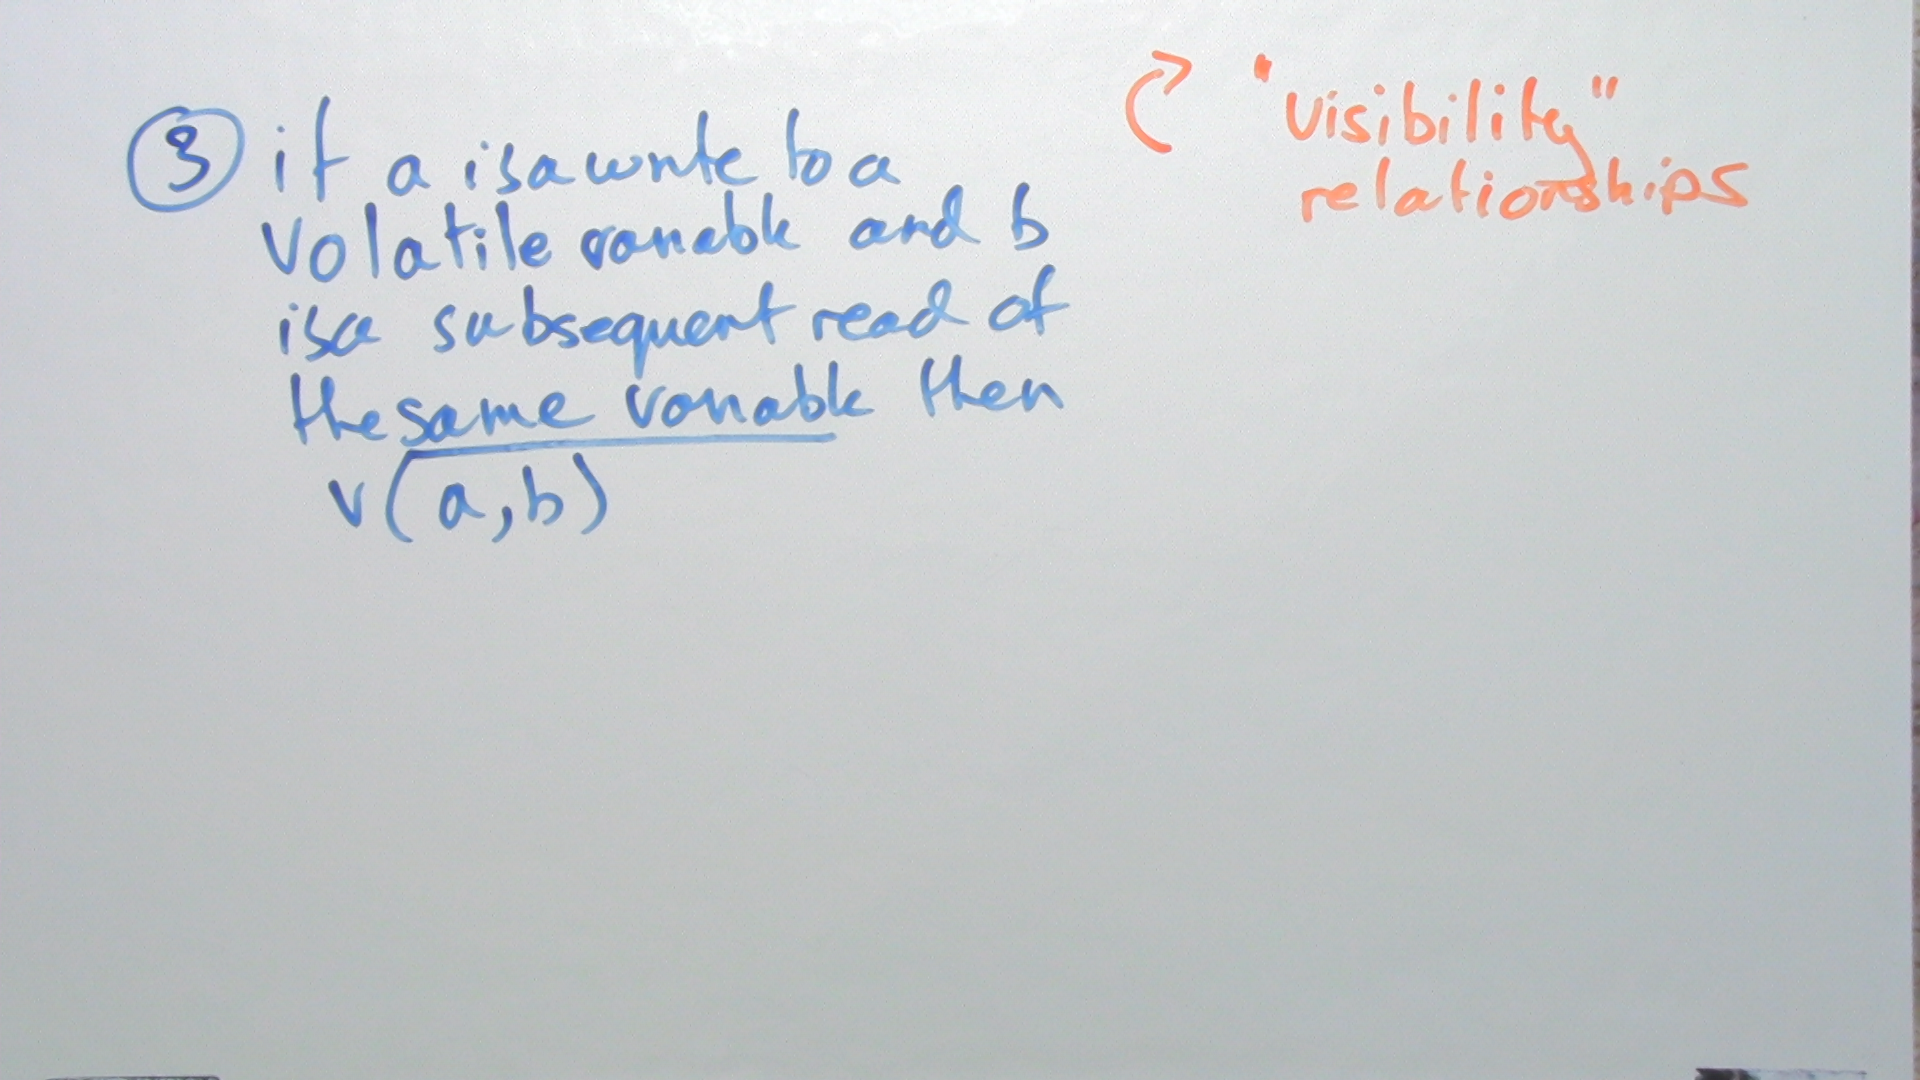 ③ if a is a write to a
volatile variable and b
is a subsequent read of
the same variable then
v(a,b)
"visibility"
relationships